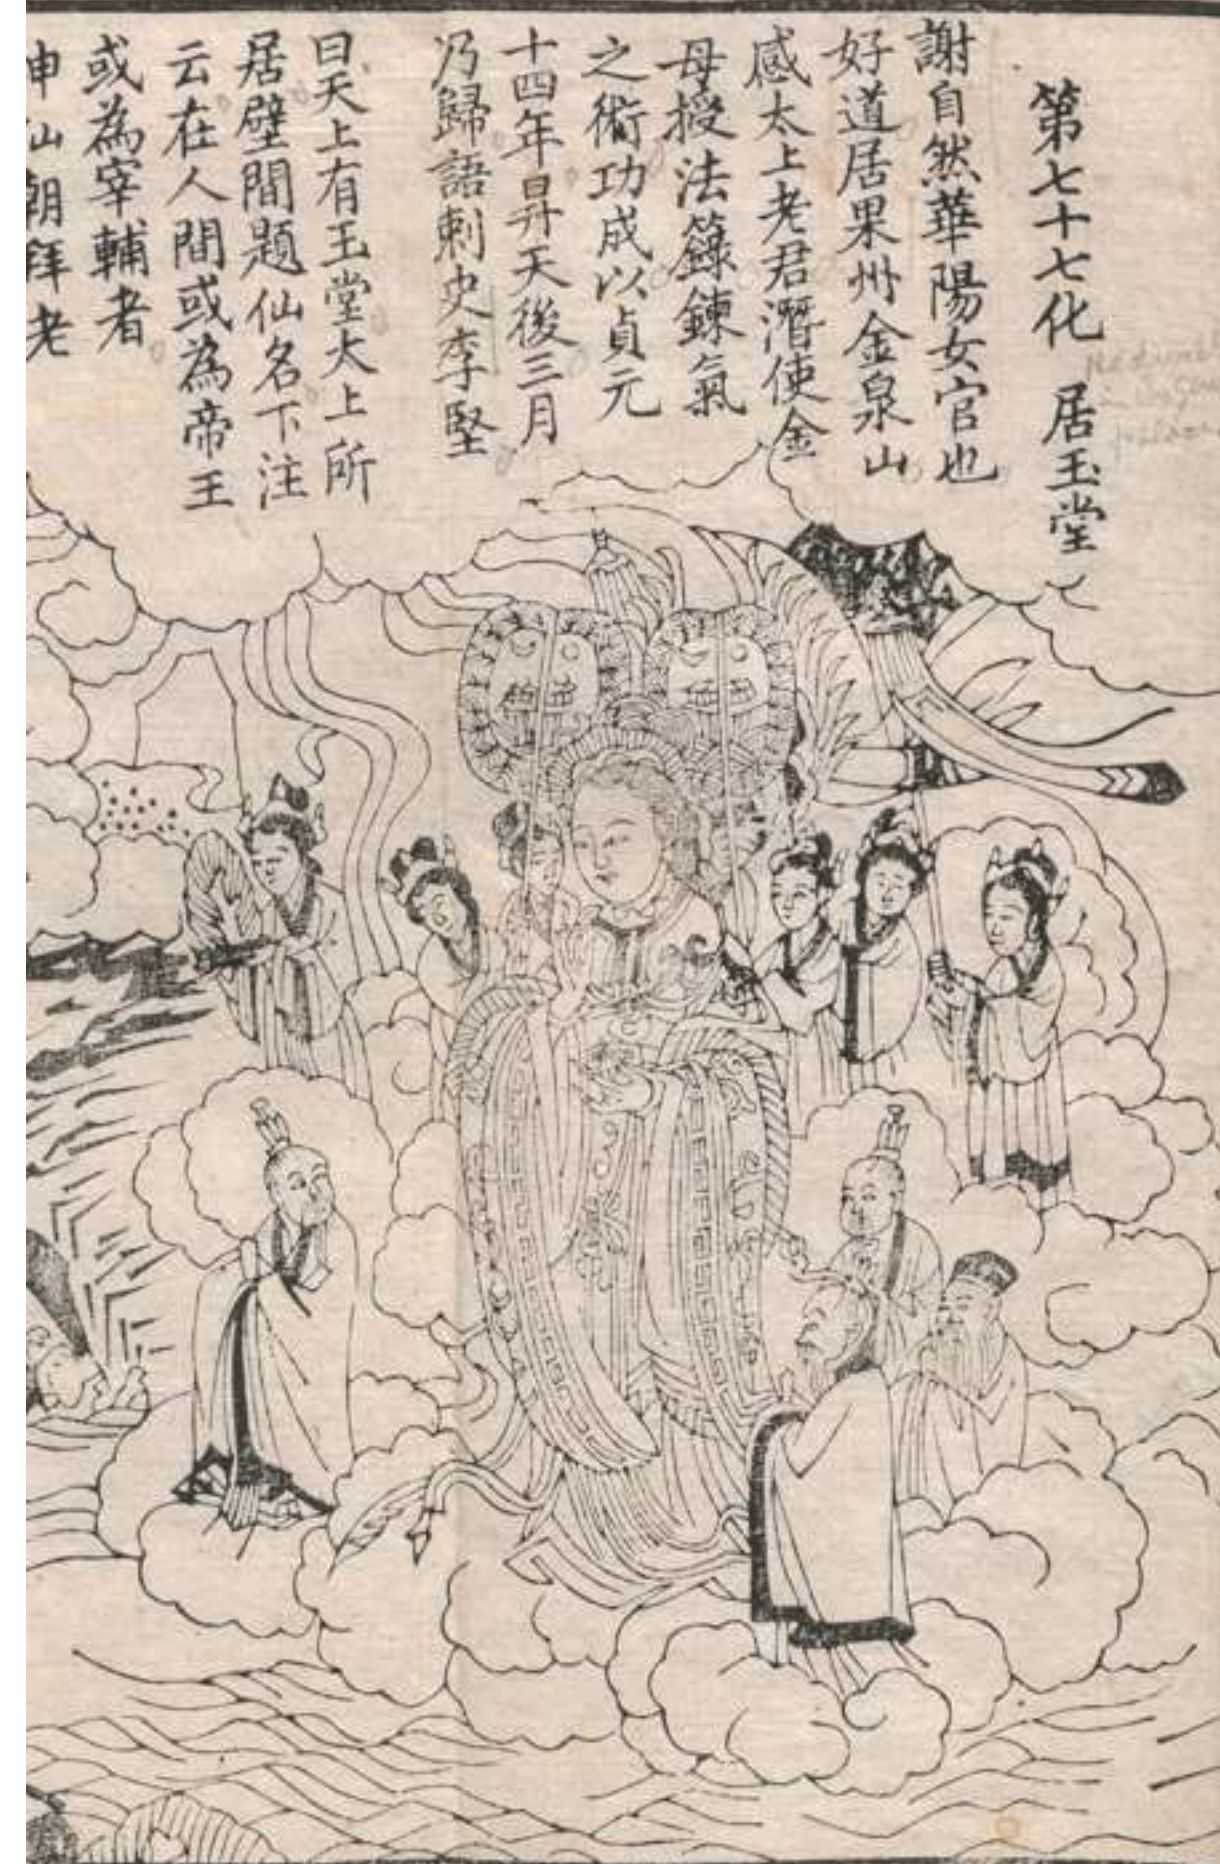 第七十七化 居玉堂
謝自然華陽女官也
好道居果州金泉山
感太上老君潛使金
母授法籙鍊氣
之術功成以貞元
十四年昇天後三月
乃歸語刺史李堅
曰天上有玉堂大上所
居壁間題仙名下注
云在人間或為帝王
或為宰輔者
神仙朝拜老